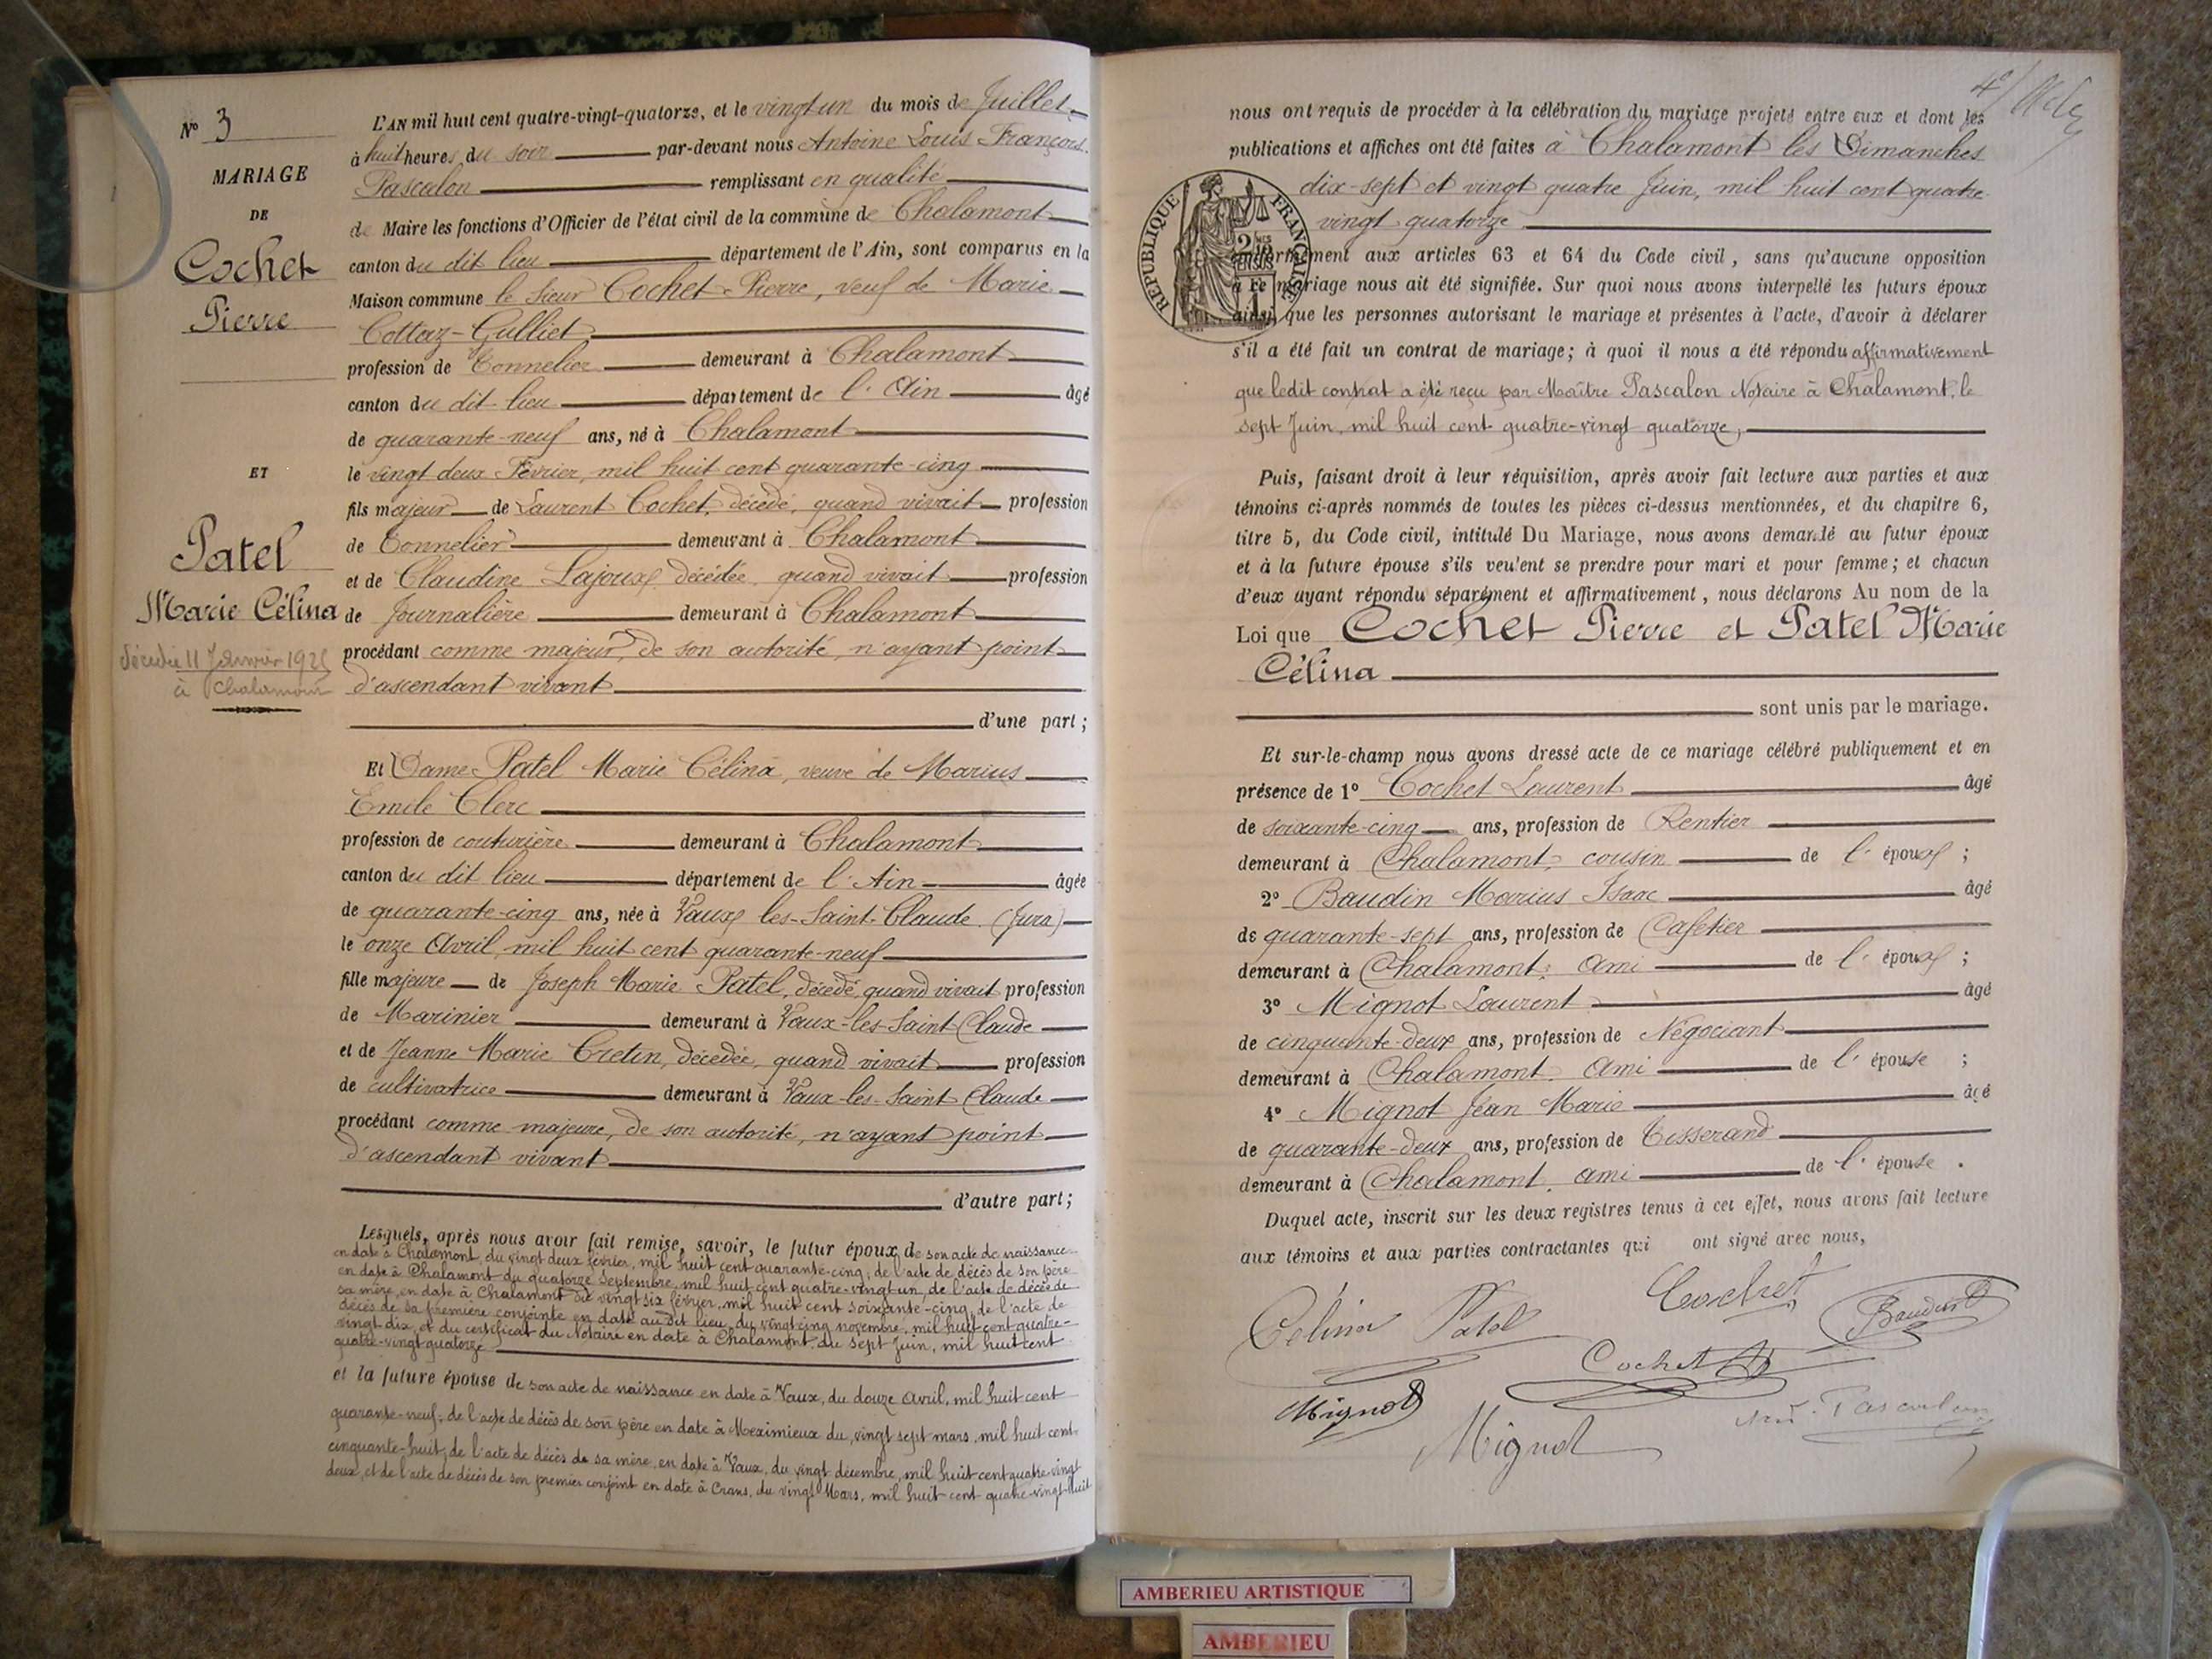 N° 3
MARIAGE
DE
Cochet
Pierre
ET
Patel
Marie Célina
décédée 11 Janvier
à Chalamont
L'AN mil huit cent quatre-vingt-quatorze, et le vingt un du mois de Juillet
à huit heures du soir par-devant nous Antoine Louis François
Pascalon remplissant en qualité
de Maire les fonctions d'Officier de l'état civil de la commune de Chalamont
canton du dit lieu département de l'Ain, sont comparus en la
Maison commune le sieur Cochet Pierre, veuf de Marie
Cottaz-Gulliet
profession de Tonnelier demeurant à Chalamont
canton du dit lieu département de l'Ain âgé
de quarante-neuf ans, né à Chalamont
le vingt deux Février, mil huit cent quarante-cinq
fils majeur de Laurent Cochet, décédé, quand vivait profession
de Tonnelier demeurant à Chalamont
et de Claudine Lajoux, décédée, quand vivait profession
de Journalière demeurant à Chalamont
procédant comme majeur, de son autorité, n'ayant point
d'ascendant vivant
d'une part;
Et Dame Patel Marie Célina, veuve de Marius
Emile Clerc
profession de couturière demeurant à Chalamont
canton du dit lieu département de l'Ain âgée
de quarante-cinq ans, née à Vaux les-Saint-Claude (Jura)
le onze Avril, mil huit cent quarante-neuf
fille majeure de Joseph Marie Patel, décédé, quand vivait profession
de Marinier demeurant à Vaux-les-Saint Claude
et de Jeanne Marie Cretin, décédée, quand vivait profession
de cultivatrice demeurant à Vaux-les-Saint Claude
procédant comme majeure, de son autorité, n'ayant point
d'ascendant vivant
d'autre part;
Lesquels, après nous avoir fait remise, savoir, le futur époux de son acte de naissance
en date à Chalamont, du vingt deux février, mil huit cent quarante-cinq, de l'acte de décès de son père
en date à Chalamont du quatorze Septembre, mil huit cent quatre-vingt un, de l'acte de décès de
sa mère, en date à Chalamont du vingt six février, mil huit cent soixante-cinq, de l'acte de
décès de sa première conjointe en date au dit lieu, du vingt cinq novembre, mil huit cent quatre-
vingt dix, et du certificat du Notaire en date à Chalamont, du sept Juin, mil huit cent
quatre-vingt quatorze
et la future épouse de son acte de naissance en date à Vaux, du douze Avril, mil huit cent
quarante-neuf, de l'acte de décès de son père en date à Meximieux du vingt sept mars, mil huit cent
cinquante-huit, de l'acte de décès de sa mère, en date à Vaux, du vingt décembre, mil huit cent quatre-vingt
deux, et de l'acte de décès de son premier conjoint en date à Crans, du vingt Mars, mil huit cent quatre-vingt-huit
4e
nous ont requis de procéder à la célébration du mariage projeté entre eux et dont les
publications et affiches ont été faites à Chalamont les Dimanches
dix-sept et vingt quatre Juin, mil huit cent quatre
vingt quatorze
RÉPUBLIQUE FRANÇAISE
conformément aux articles 63 et 64 du Code civil, sans qu'aucune opposition
à ce mariage nous ait été signifiée. Sur quoi nous avons interpellé les futurs époux
ainsi que les personnes autorisant le mariage et présentes à l'acte, d'avoir à déclarer
s'il a été fait un contrat de mariage; à quoi il nous a été répondu affirmativement
que ledit contrat a été reçu par Maître Pascalon Notaire à Chalamont, le
sept Juin, mil huit cent quatre-vingt quatorze,
Puis, faisant droit à leur réquisition, après avoir fait lecture aux parties et aux
témoins ci-après nommés de toutes les pièces ci-dessus mentionnées, et du chapitre 6,
titre 5, du Code civil, intitulé Du Mariage, nous avons demandé au futur époux
et à la future épouse s'ils veulent se prendre pour mari et pour femme; et chacun
d'eux ayant répondu séparément et affirmativement, nous déclarons Au nom de la
Loi que Cochet Pierre et Patel Marie
Célina
sont unis par le mariage.
Et sur-le-champ nous avons dressé acte de ce mariage célébré publiquement et en
présence de 1° Cochet Laurent âgé
de soixante-cinq ans, profession de Rentier
demeurant à Chalamont, cousin de l'époux;
2° Baudin Marius Isaac âgé
de quarante-sept ans, profession de Cafetier
demeurant à Chalamont, ami de l'époux;
3° Mignot Laurent âgé
de cinquante-deux ans, profession de Négociant
demeurant à Chalamont, ami de l'épouse;
4° Mignot Jean Marie âgé
de quarante-deux ans, profession de Tisserand
demeurant à Chalamont, ami de l'épouse.
Duquel acte, inscrit sur les deux registres tenus à cet effet, nous avons fait lecture
aux témoins et aux parties contractantes qui ont signé avec nous,
Célina Patel
Cochet
Baudin
Cochet
Mignot
Mignot
Pascalon
AMBERIEU ARTISTIQUE
AMBERIEU